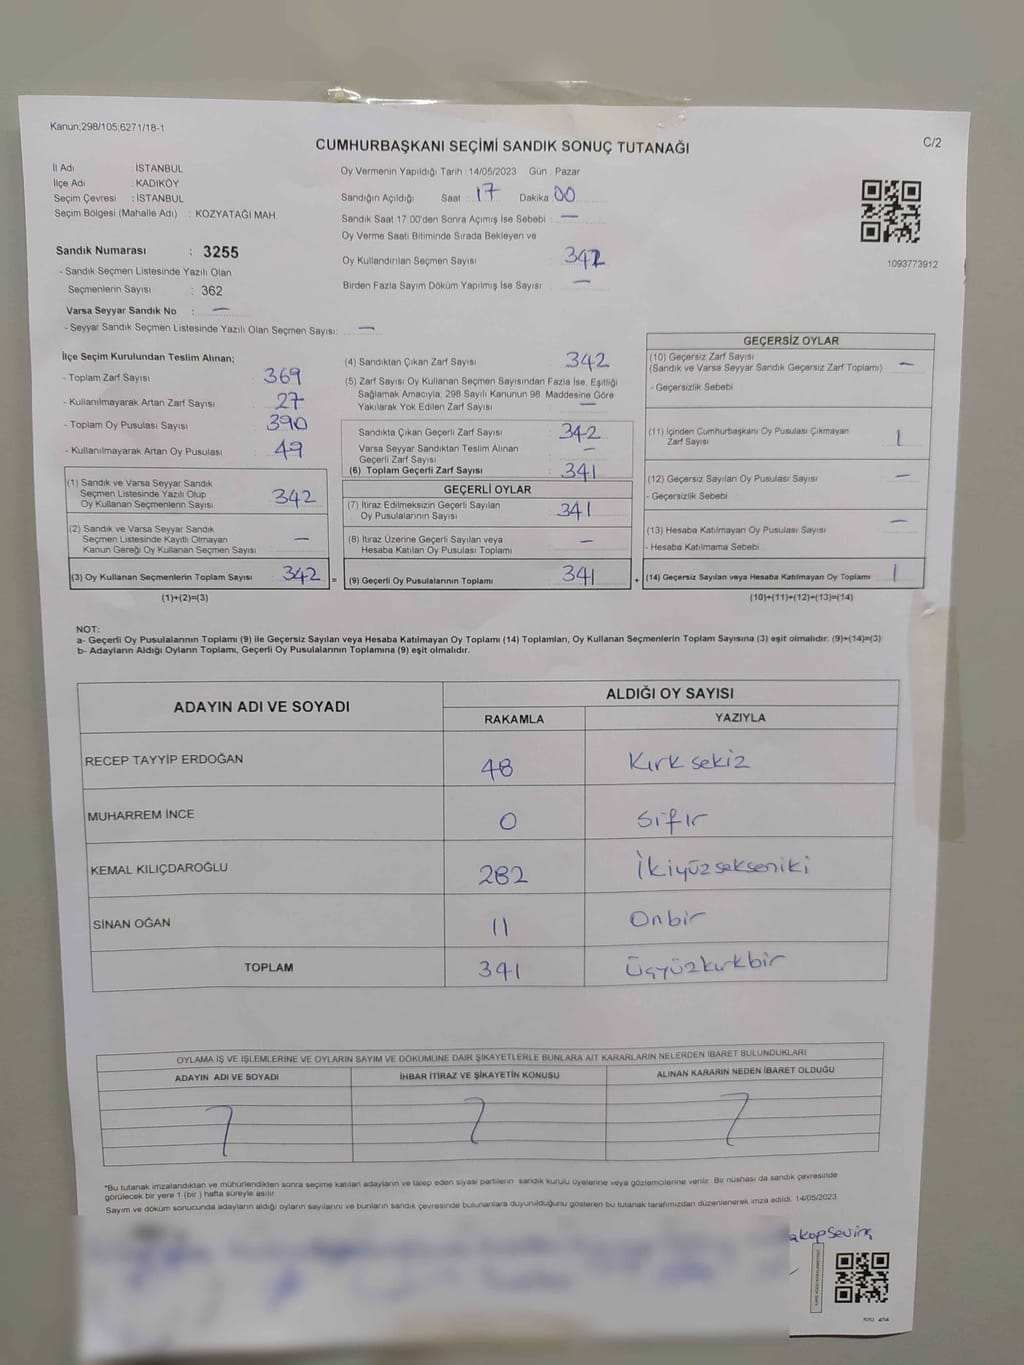 Kanun;298/105;6271/18-1
CUMHURBAŞKANI SEÇİMİ SANDIK SONUÇ TUTANAĞI
C/2
İl Adı : İSTANBUL
İlçe Adı : KADIKÖY
Seçim Çevresi : İSTANBUL
Seçim Bölgesi (Mahalle Adı) : KOZYATAĞI MAH.
Oy Vermenin Yapıldığı Tarih : 14/05/2023 Gün : Pazar
Sandığın Açıldığı Saat : 17 Dakika 00
Sandık Saat 17:00'den Sonra Açımış İse Sebebi : —
Oy Verme Saati Bitiminde Sırada Bekleyen ve
Oy Kullandırılan Seçmen Sayısı : 342
Birden Fazla Sayım Döküm Yapılmış İse Sayısı : —
1093773912
Sandık Numarası : 3255
- Sandık Seçmen Listesinde Yazılı Olan
Seçmenlerin Sayısı : 362
Varsa Seyyar Sandık No : —
- Seyyar Sandık Seçmen Listesinde Yazılı Olan Seçmen Sayısı: —
İlçe Seçim Kurulundan Teslim Alınan;
- Toplam Zarf Sayısı : 369
- Kullanılmayarak Artan Zarf Sayısı : 27
- Toplam Oy Pusulası Sayısı : 390
- Kullanılmayarak Artan Oy Pusulası : 49
(1) Sandık ve Varsa Seyyar Sandık
Seçmen Listesinde Yazılı Olup
Oy Kullanan Seçmenlerin Sayısı : 342
(2) Sandık ve Varsa Seyyar Sandık
Seçmen Listesinde Kayıtlı Olmayan
Kanun Gereği Oy Kullanan Seçmen Sayısı : —
(3) Oy Kullanan Seçmenlerin Toplam Sayısı : 342 =
(1)+(2)=(3)
(4) Sandıktan Çıkan Zarf Sayısı : 342
(5) Zarf Sayısı Oy Kullanan Seçmen Sayısından Fazla İse, Eşitliği
Sağlamak Amacıyla; 298 Sayılı Kanunun 98. Maddesine Göre
Yakılarak Yok Edilen Zarf Sayısı : —
Sandıkta Çıkan Geçerli Zarf Sayısı : 342
Varsa Seyyar Sandıktan Teslim Alınan
Geçerli Zarf Sayısı : —
(6) Toplam Geçerli Zarf Sayısı : 341
GEÇERLİ OYLAR
(7) İtiraz Edilmeksizin Geçerli Sayılan
Oy Pusulalarının Sayısı : 341
(8) İtiraz Üzerine Geçerli Sayılan veya
Hesaba Katılan Oy Pusulası Toplamı : —
(9) Geçerli Oy Pusulalarının Toplamı : 341 +
GEÇERSİZ OYLAR
(10) Geçersiz Zarf Sayısı
(Sandık ve Varsa Seyyar Sandık Geçersiz Zarf Toplamı) : —
- Geçersizlik Sebebi
(11) İçinden Cumhurbaşkanı Oy Pusulası Çıkmayan
Zarf Sayısı : 1
(12) Geçersiz Sayılan Oy Pusulası Sayısı : —
- Geçersizlik Sebebi
(13) Hesaba Katılmayan Oy Pusulası Sayısı : —
- Hesaba Katılmama Sebebi :
(14) Geçersiz Sayılan veya Hesaba Katılmayan Oy Toplamı : 1
(10)+(11)+(12)+(13)=(14)
NOT:
a- Geçerli Oy Pusulalarının Toplamı (9) ile Geçersiz Sayılan veya Hesaba Katılmayan Oy Toplamı (14) Toplamları, Oy Kullanan Seçmenlerin Toplam Sayısına (3) eşit olmalıdır. (9)+(14)=(3)
b- Adayların Aldığı Oyların Toplamı, Geçerli Oy Pusulalarının Toplamına (9) eşit olmalıdır.
ADAYIN ADI VE SOYADI
ALDIĞI OY SAYISI
RAKAMLA YAZIYLA
RECEP TAYYİP ERDOĞAN 48 Kırk sekiz
MUHARREM İNCE 0 sıfır
KEMAL KILIÇDAROĞLU 282 İkiyüzsekseniki
SİNAN OĞAN 11 Onbir
TOPLAM 341 Üçyüzkırkbir
OYLAMA İŞ VE İŞLEMLERİNE VE OYLARIN SAYIM VE DÖKÜMÜNE DAİR ŞİKAYETLERLE BUNLARA AİT KARARLARIN NELERDEN İBARET BULUNDUKLARI
ADAYIN ADI VE SOYADI İHBAR İTİRAZ VE ŞİKAYETİN KONUSU ALINAN KARARIN NEDEN İBARET OLDUĞU
*Bu tutanak imzalandıktan ve mühürlendikten sonra seçime katılan adayların ve talep eden siyasi partilerin sandık kurulu üyelerine veya gözlemcilerine verilir. Bir nüshası da sandık çevresinde
görülecek bir yere 1 (bir) hafta süreyle asılır.
Sayım ve döküm sonucunda adayların aldığı oyların sayılarını ve bunların sandık çevresinde bulunanlara duyurulduğunu gösteren bu tutanak tarafımızdan düzenlenerek imza edildi. 14/05/2023
akop Sevinç